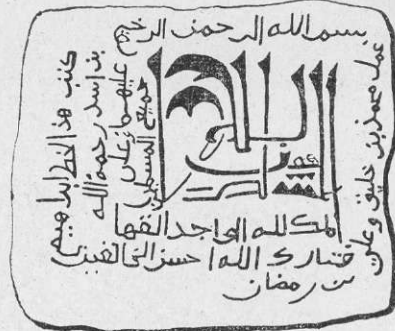 بسم الله الرحمن الرحيم
عمل محمد بن خليق وعلي
الملك لله الواحد القهار
فتبارك الله احسن الخالقين
بن رمضان
كتب هذا الخط ابراهيم
بن اسد رحمة الله
عليهما وعلى
جميع المسلمين